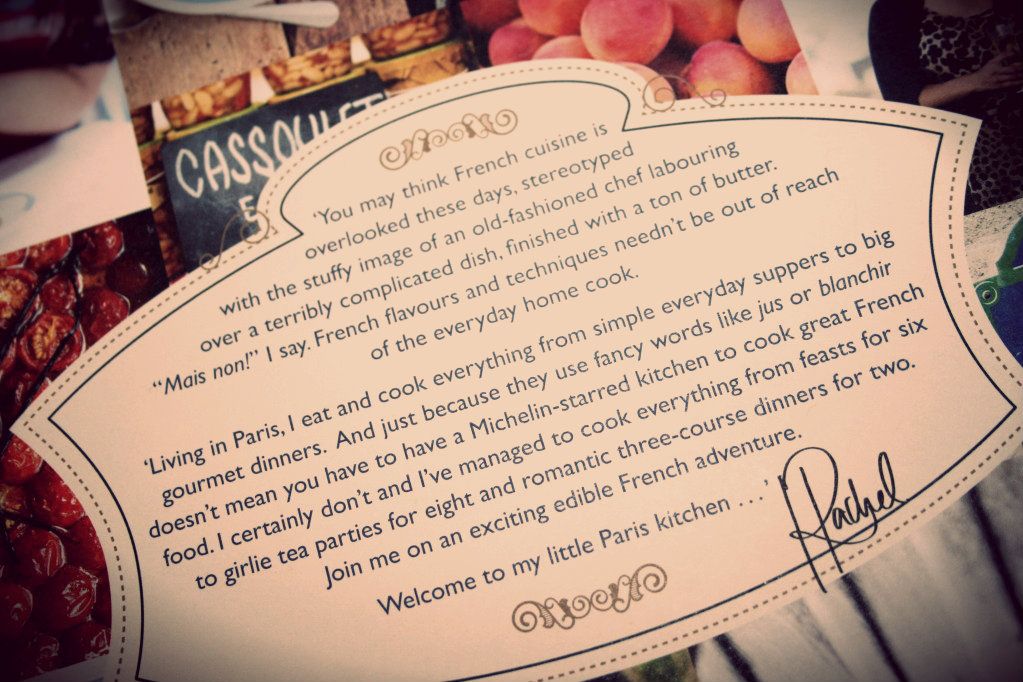 CASSOULET
'You may think French cuisine is
overlooked these days, stereotyped
with the stuffy image of an old-fashioned chef labouring
over a terribly complicated dish, finished with a ton of butter.
"Mais non!" I say. French flavours and techniques needn't be out of reach
of the everyday home cook.
'Living in Paris, I eat and cook everything from simple everyday suppers to big
gourmet dinners. And just because they use fancy words like jus or blanchir
doesn't mean you have to have a Michelin-starred kitchen to cook great French
food. I certainly don't and I've managed to cook everything from feasts for six
to girlie tea parties for eight and romantic three-course dinners for two.
Join me on an exciting edible French adventure.
Welcome to my little Paris kitchen ...'
Rachel